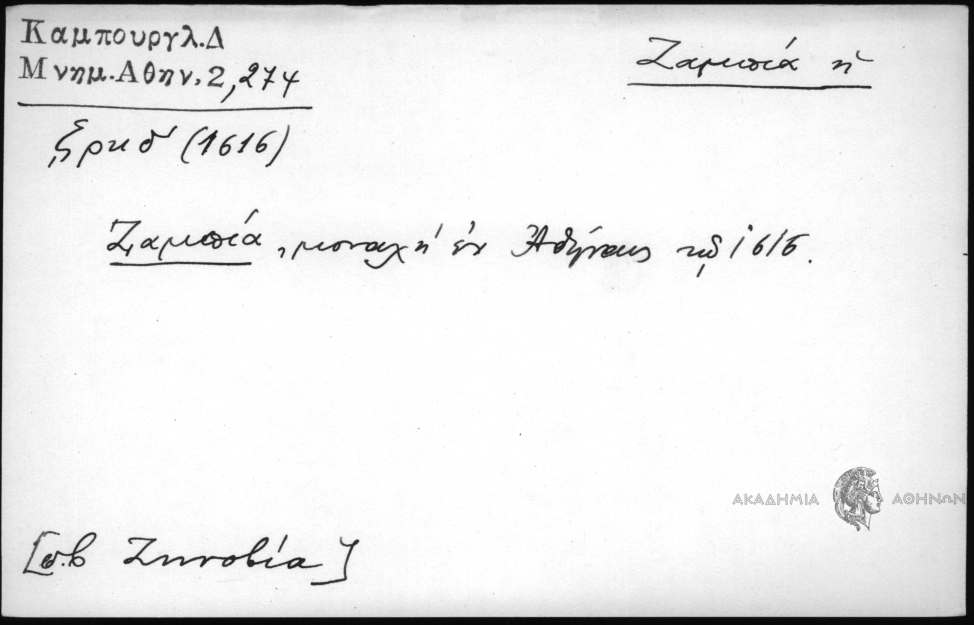 Καμπουργλ.Δ
Μνημ.Αθην. 2, 274
Ζαμπιά ἡ
ζρκδ´ (1616)
Ζαμπιά, μοναχή ἐν Ἀθήναις τῷ 1616.
ΑΚΑΔΗΜΙΑ ΑΘΗΝΩΝ
[π.β Ζηνοβία]